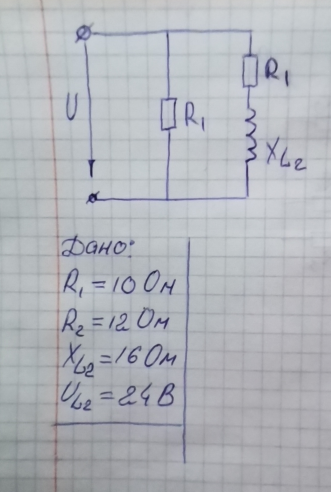 U
R₁
R₁
X_L₂
Дано:
R₁ = 10 Ом
R₂ = 12 Ом
X_L₂ = 16 Ом
U_L₂ = 24 В